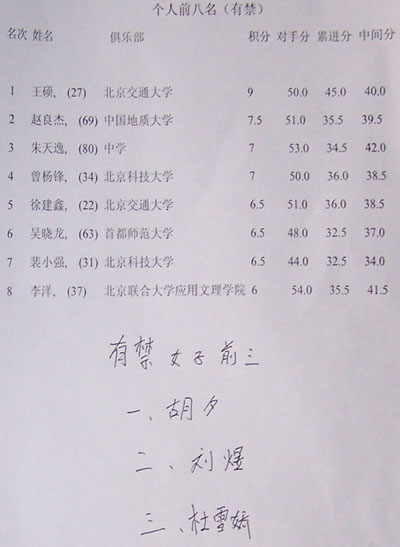 个人前八名（有禁）
名次 姓名 俱乐部 积分 对手分 累进分 中间分
1 王硕, (27) 北京交通大学 9 50.0 45.0 40.0
2 赵良杰, (69) 中国地质大学 7.5 51.0 35.5 39.5
3 朱天逸, (80) 中学 7 53.0 34.5 42.0
4 曾杨锋, (34) 北京科技大学 7 50.0 36.0 38.5
5 徐建鑫, (22) 北京交通大学 6.5 51.0 36.0 38.5
6 吴晓龙, (63) 首都师范大学 6.5 48.0 32.5 37.0
7 裴小强, (31) 北京科技大学 6.5 44.0 32.5 34.0
8 李洋, (37) 北京联合大学应用文理学院 6 54.0 35.5 41.5
有禁女子前三
一、胡夕
二、刘煜
三、杜雪娇